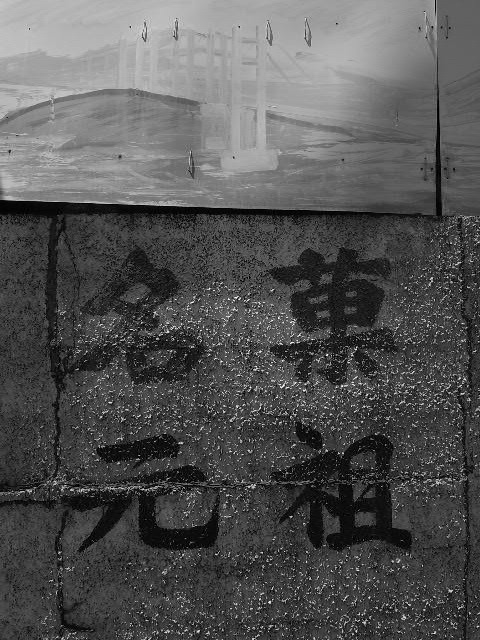 菓祖
名元